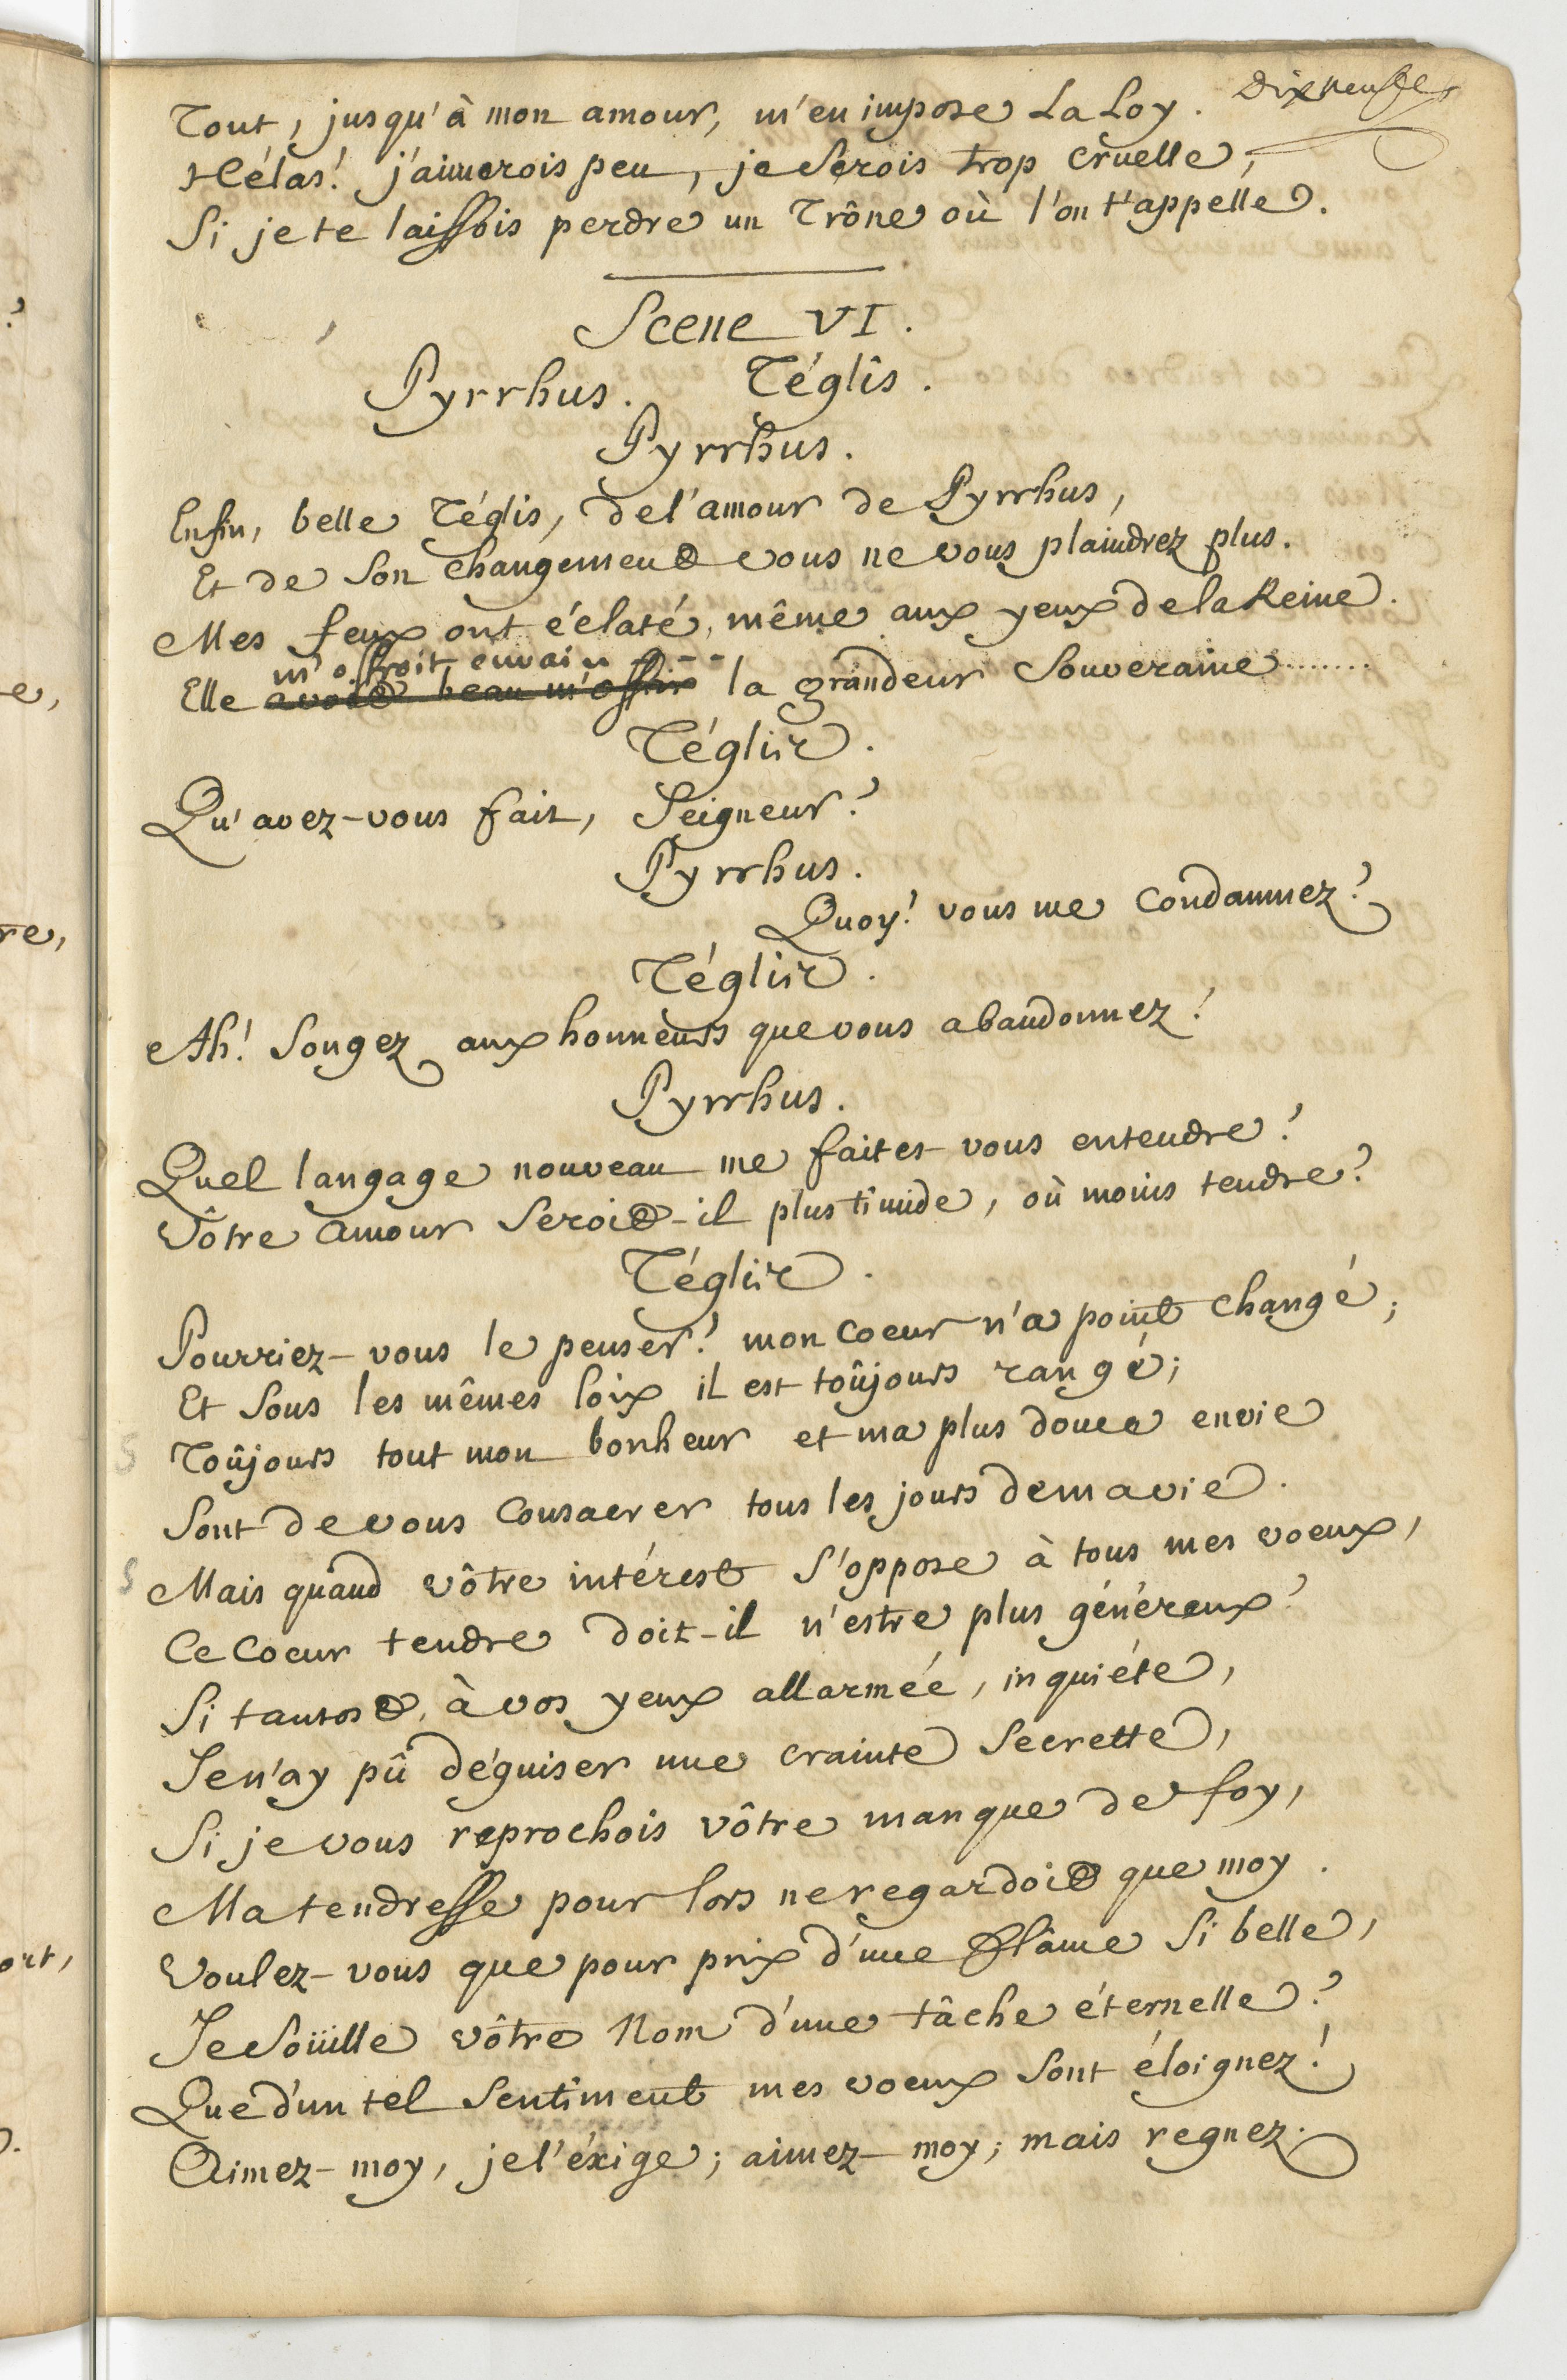 Dixneufe
Tout, jusqu'à mon amour, m'en impose La Loy.
Hélas! j'aimerois peu, je serois trop cruelle,
Si je te laissois perdre un Trône où l'on t'appelle.
Scene VI.
Pyrrhus. Téglis.
Pyrrhus.
Enfin, belle Téglis, de l'amour de Pyrrhus,
Et de son changement vous ne vous plaindrez plus.
Mes feux ont éclaté, même aux yeux de la Reine.
m'offroit envain - - -
Elle avoit beau m'offrir la grandeur Souveraine........
Téglis.
Qu'avez-vous fait, Seigneur?
Pyrrhus.
Quoy! vous me condamnez?
Téglis.
Ah! Songez aux honneurs que vous abandonnez!
Pyrrhus.
Quel langage nouveau me faites-vous entendre!
Vôtre amour seroit-il plus timide, où moins tendre?
Téglis.
Pourriez-vous le penser! mon coeur n'a point changé;
Et sous les mêmes loix il est toûjours rangé;
Toûjours tout mon bonheur et ma plus douce envie
Sont de vous consacrer tous les jours de ma vie.
Mais quand vôtre intérest s'oppose à tous mes voeux,
Ce coeur tendre doit-il n'estre plus généreux?
Si tantost, à vos yeux allarmée, inquiéte,
Je n'ay pû déguiser une crainte secrette,
Si je vous reprochois vôtre manque de foy,
Ma tendresse pour lors ne regardoit que moy.
Voulez-vous que pour prix d'une flâme si belle,
Je soüille vôtre Nom d'une tâche éternelle?
Que d'un tel sentiment mes voeux sont éloignez!
Aimez-moy, je l'éxige; aimez-moy; mais regnez.